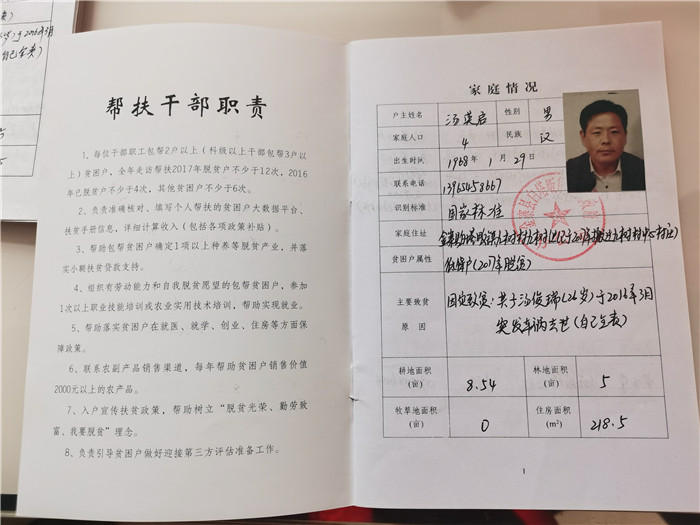 帮扶干部职责
1、每位干部职工包帮2户以上（科级以上干部包帮3户以
上）贫困户，全年走访帮扶2017年脱贫户不少于12次，2016
年已脱贫户不少于4次，其他贫困户不少于6次。
2、负责准确核对、填写个人帮扶的贫困户大数据平台、
扶贫手册信息，详细计算收入（包括各项政策补贴）。
3、帮助包帮贫困户确定1项以上种养等脱贫产业，并落
实小额扶贫贷款支持。
4、组织有劳动能力和自我脱贫愿望的包帮贫困户，参加
1次以上职业技能培训或农业实用技术培训，帮助实现就业。
5、帮助落实贫困户在就医、就学、创业、住房等方面保
障政策。
6、联系农副产品销售渠道，每年帮助贫困户销售价值
2000元以上的农产品。
7、入户宣传扶贫政策，帮助树立“脱贫光荣、勤劳致
富、我要脱贫”理念。
8、负责引导贫困户做好迎接第三方评估准备工作。
家庭情况
户主姓名 汤英启 性别 男
家庭人口 4 民族 汉
出生时间 1968年1月29日
联系电话 13965458667
识别标准 国家标准
家庭住址
贫困户属性 低保户(2017年脱贫)
主要致贫
原因
因灾致贫：关于汤俊瑞(26岁)于2016年3月
突发车祸去世(自己全责)
耕地面积
(亩)
8.54
林地面积
(亩)
5
牧草地面积
(亩)
0
住房面积
(m²)
218.5
1